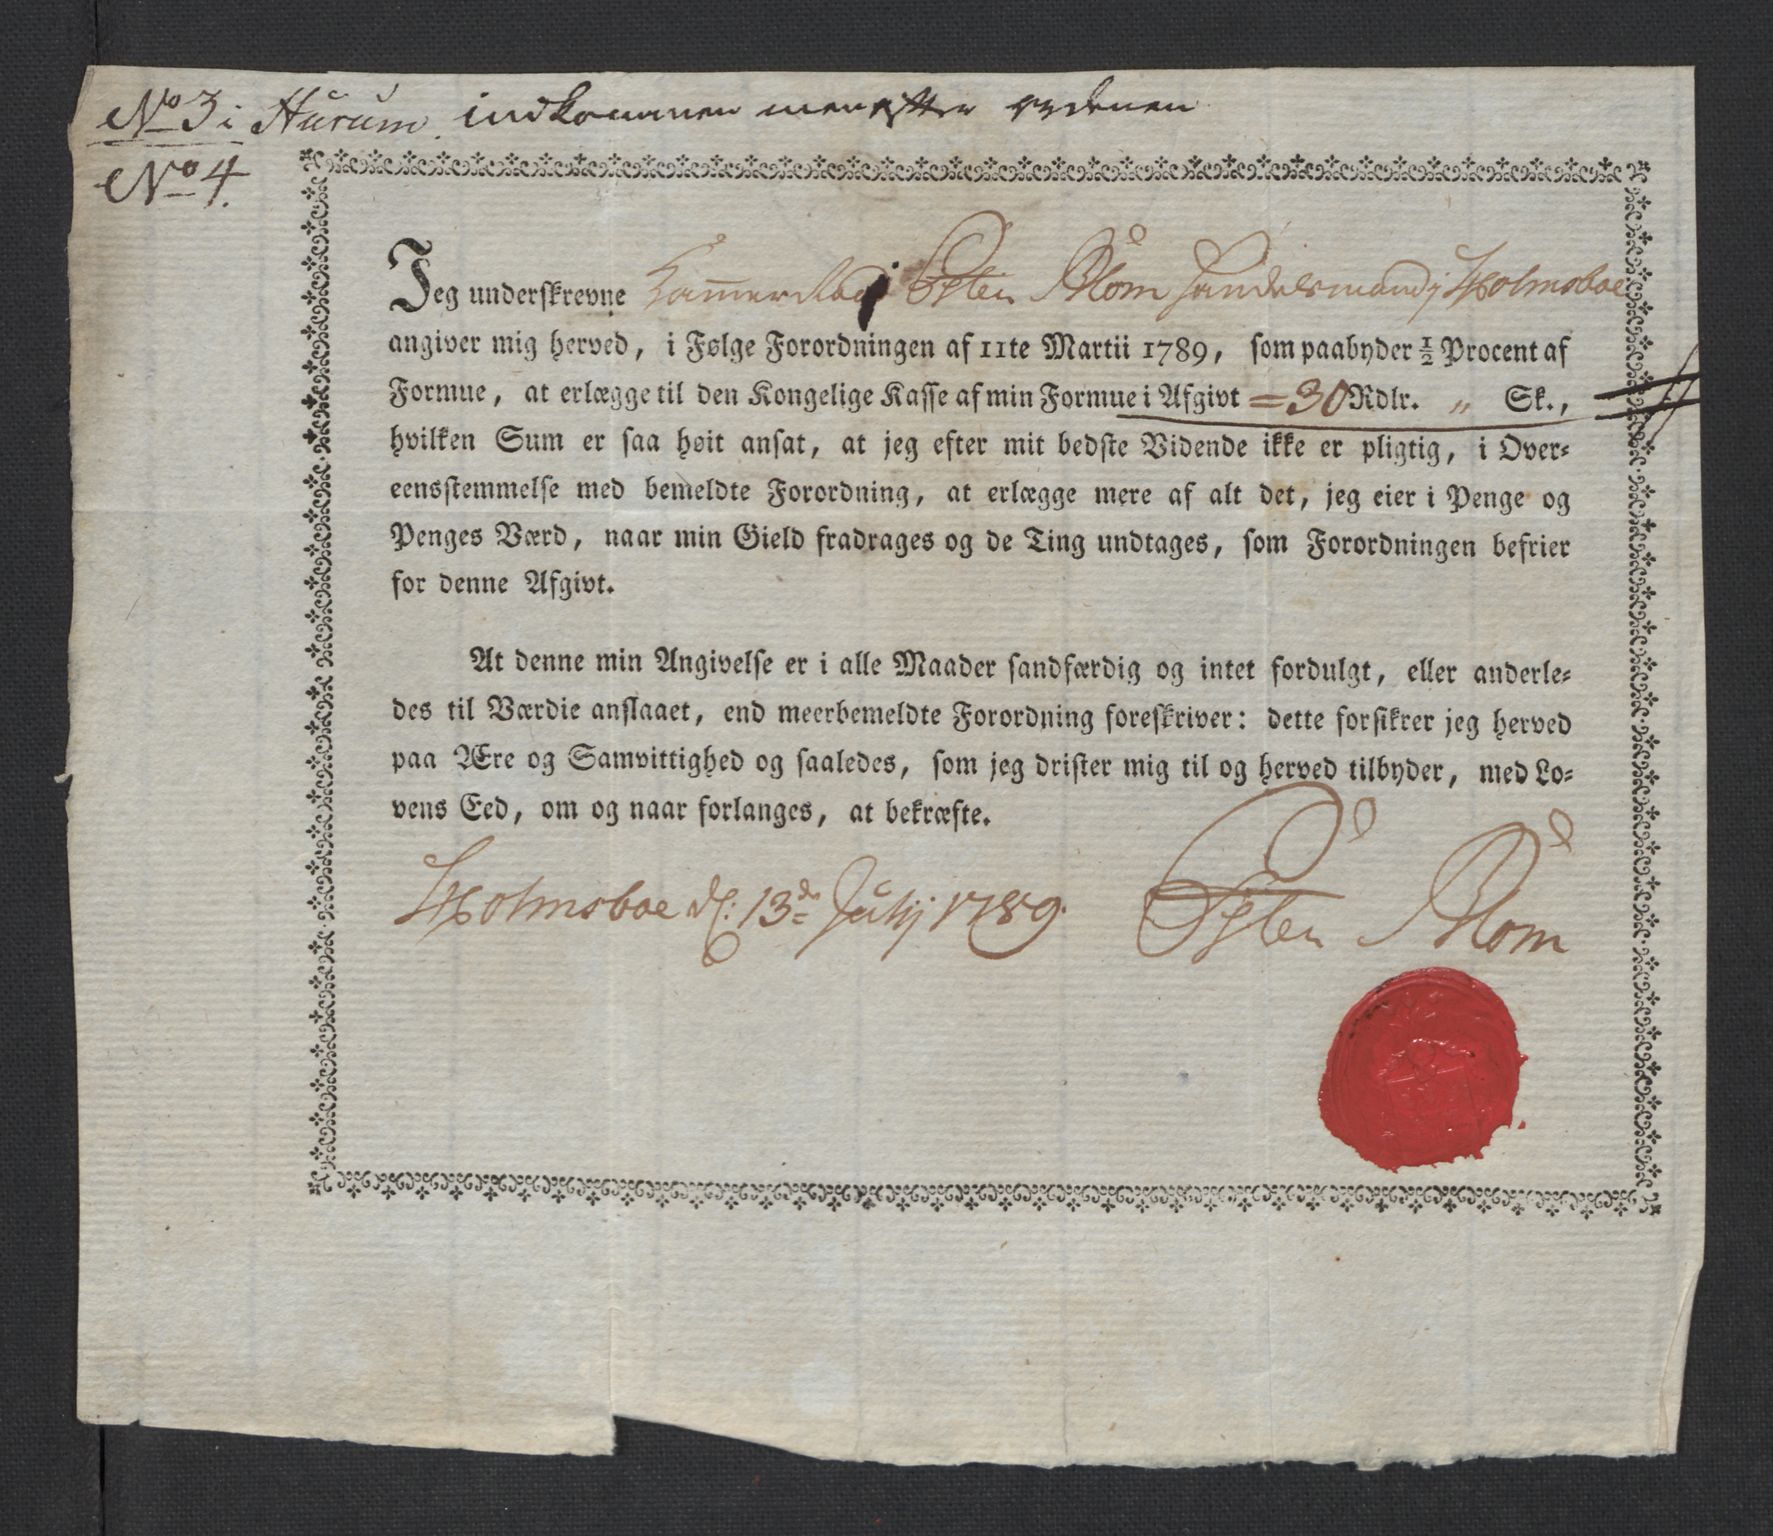 No 3 i Hurum. indkommen men efter ordenen
No 4.
Jeg underskrevne Peter Blom Handelsmand j Holmsboe
angiver mig herved, i Følge Forordningen af 11te Martii 1789, som paabyder ½ Procent af
Formue, at erlægge til den Kongelige Kasse af min Formue i Afgivt = 30 Rdlr. „ Sk.,
hvilken Sum er saa høit ansat, at jeg efter mit bedste Vidende ikke er pligtig, i Over-
eensstemmelse med bemeldte Forordning, at erlægge mere af alt det, jeg eier i Penge og
Penges Værd, naar min Gield fradrages og de Ting undtages, som Forordningen befrier
for denne Afgivt.
At denne min Angivelse er i alle Maader sandfærdig og intet fordulgt, eller anderle-
des til Værdie anslaaet, end meerbemeldte Forordning foreskriver: dette forsikrer jeg herved
paa Ære og Samvittighed og saaledes, som jeg drister mig til og herved tilbyder, med Lo-
vens Eed, om og naar forlanges, at bekræfte.
Holmsboe d: 13de Julij 1789. Peter Blom